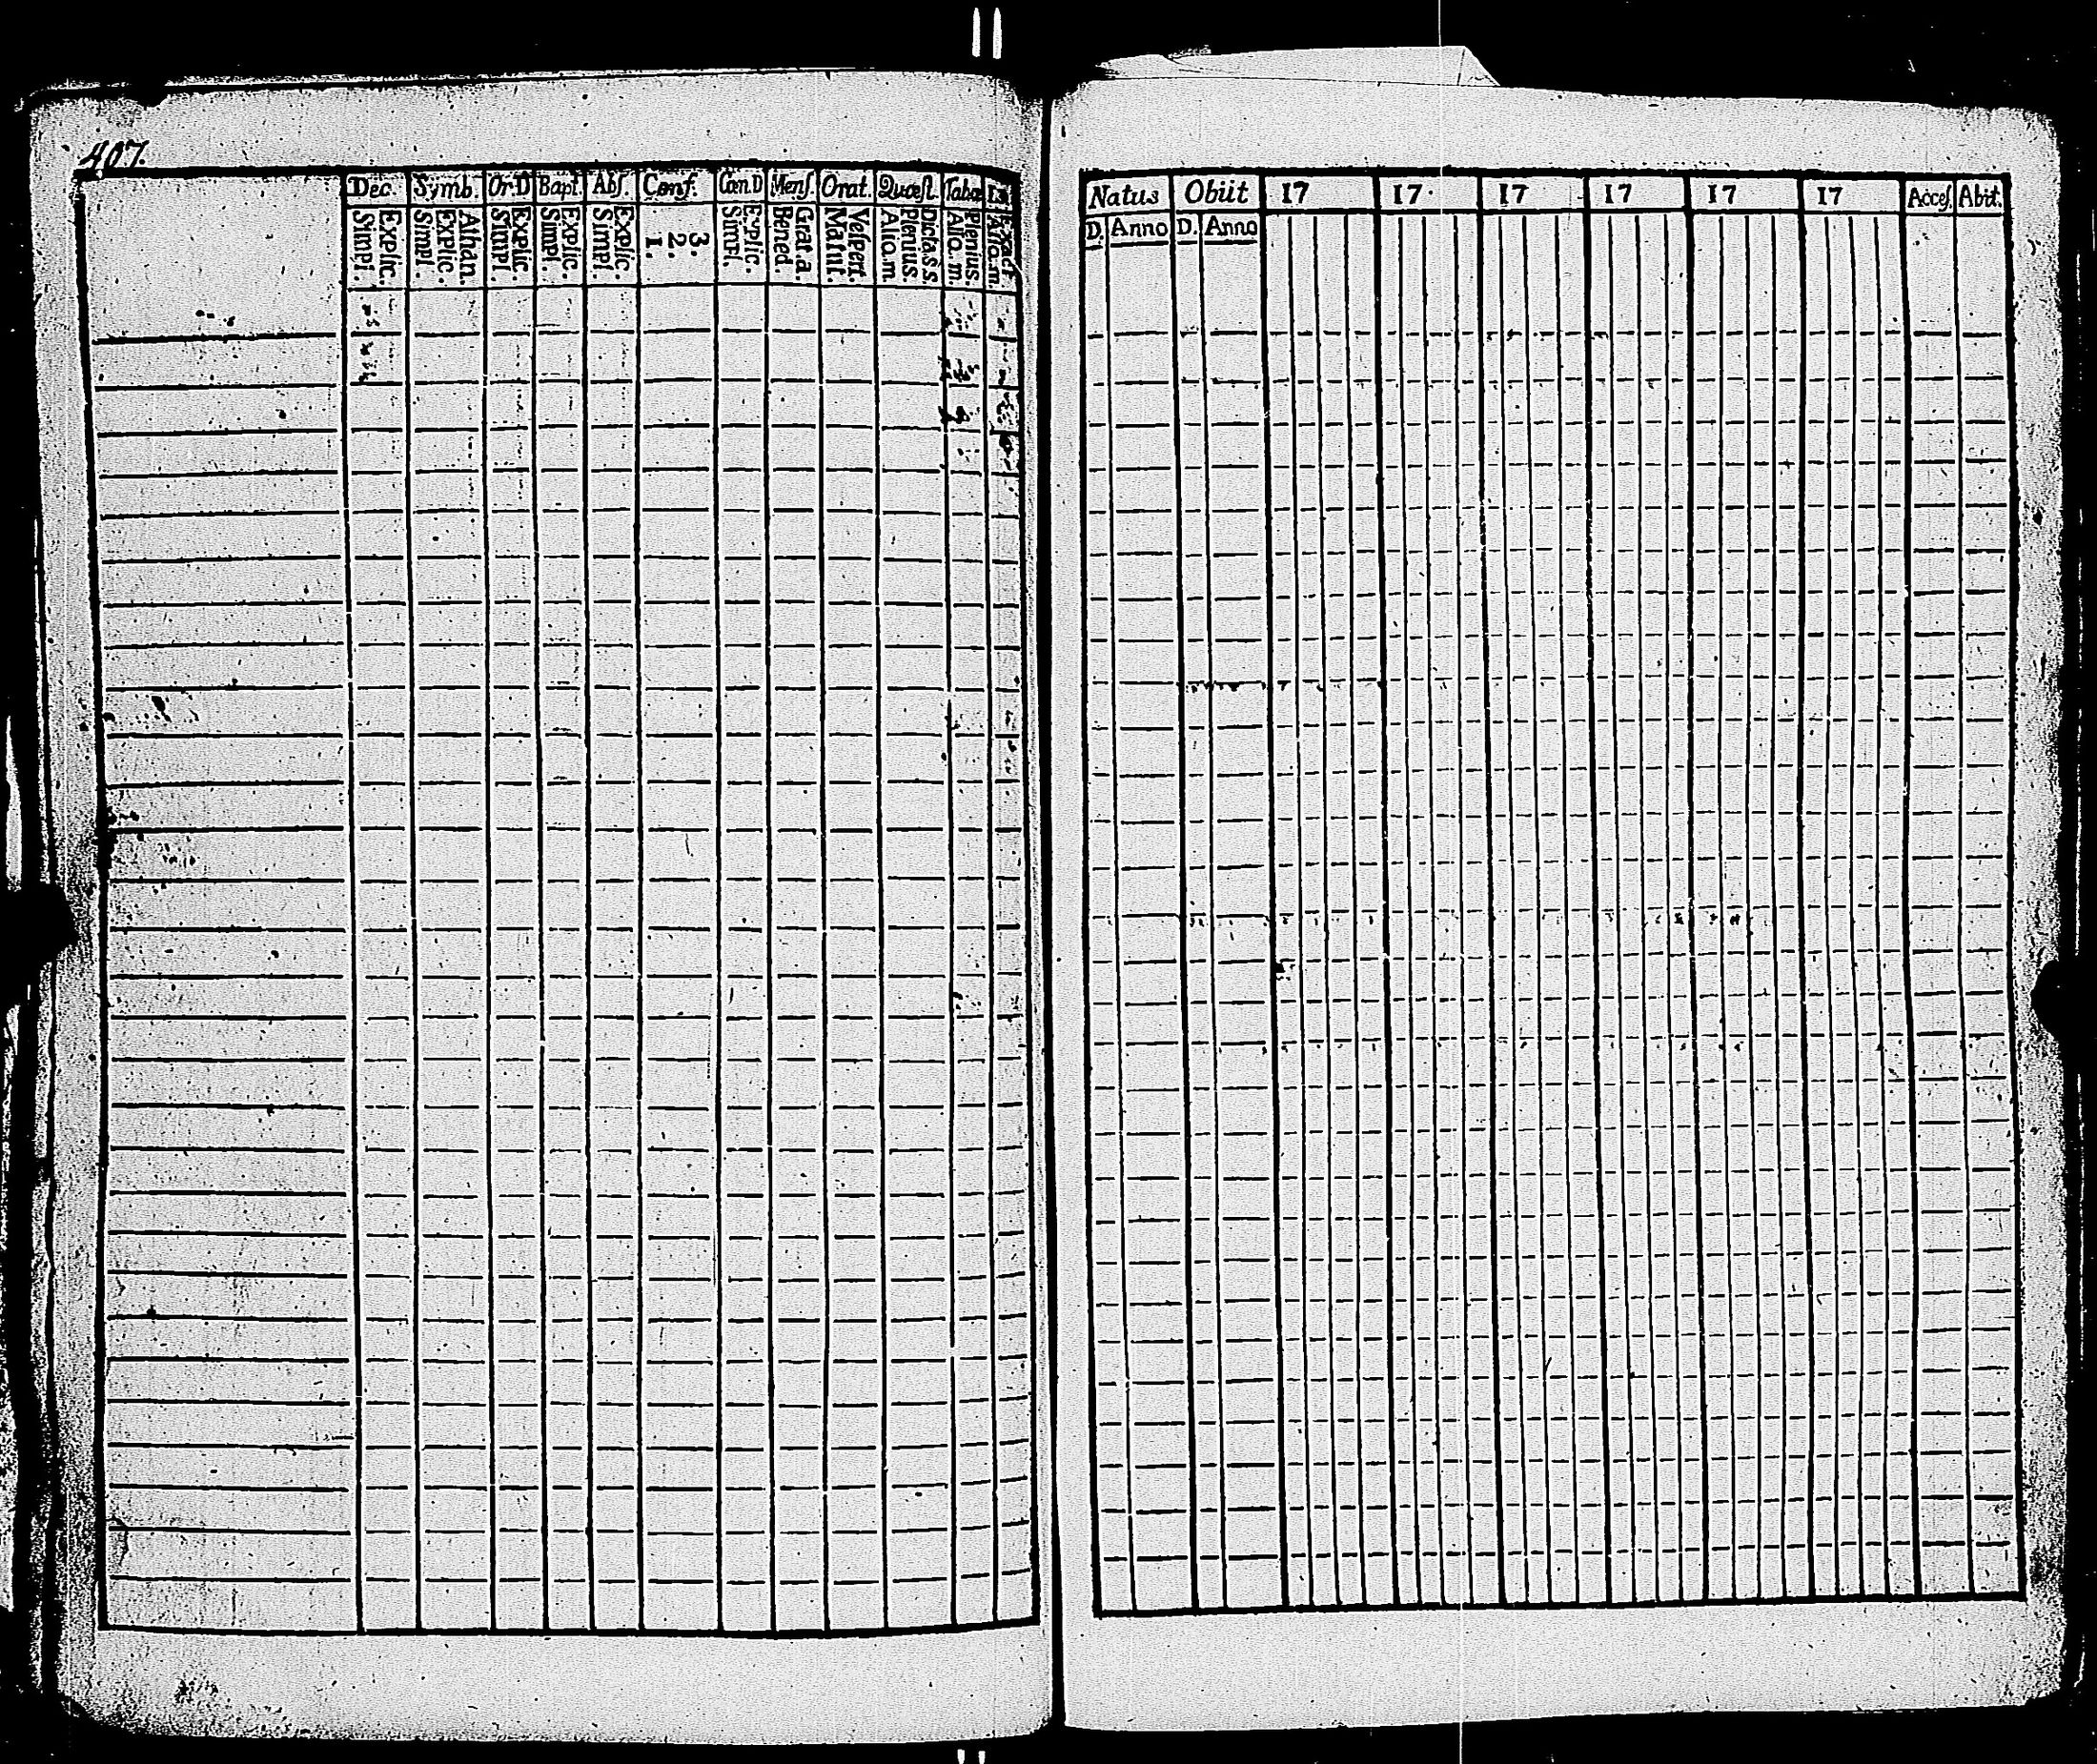 407.
Dec. Symb. Or.D Bapt. Abſ. Conf. Cœn.D Menſ. Orat. Quæſt. Taba
Explic. Simpl. Athan. Explic. Simpl. Explic. Simpl. Explic. Simpl. Explic. Simpl. 3. 2. 1. Explic. Simpl. Grat.a. Bened. Veſpert. Matut. Dicta.s.s. Plenius. Aliq.m Plenius. Aliq.m. Exact. Aliq.m.
Natus Obiit 17 17. 17 17 17 17 Acceſ. Abit.
D. Anno D. Anno